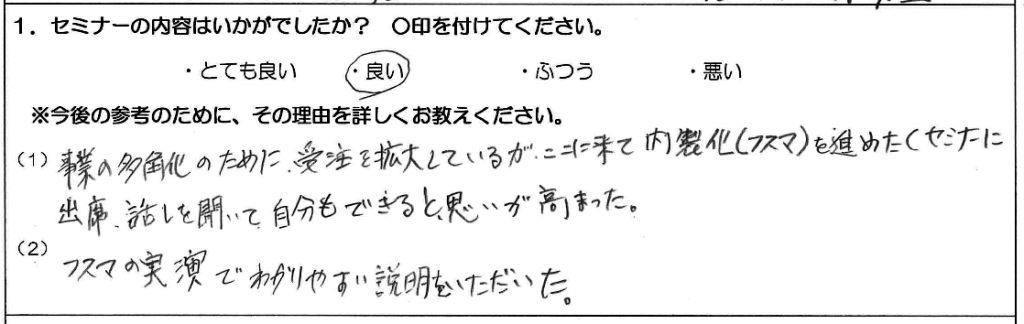 1．セミナーの内容はいかがでしたか？　〇印を付けてください。
・とても良い　・良い　・ふつう　・悪い
※今後の参考のために、その理由を詳しくお教えください。
（1）事業の多角化のために、受注を拡大しているが、ここに来て内製化(フスマ)を進めたくセミナーに
出席、話しを聞いて、自分もできると思いが高まった。
（2）フスマの実演でわかりやすい説明をいただいた。